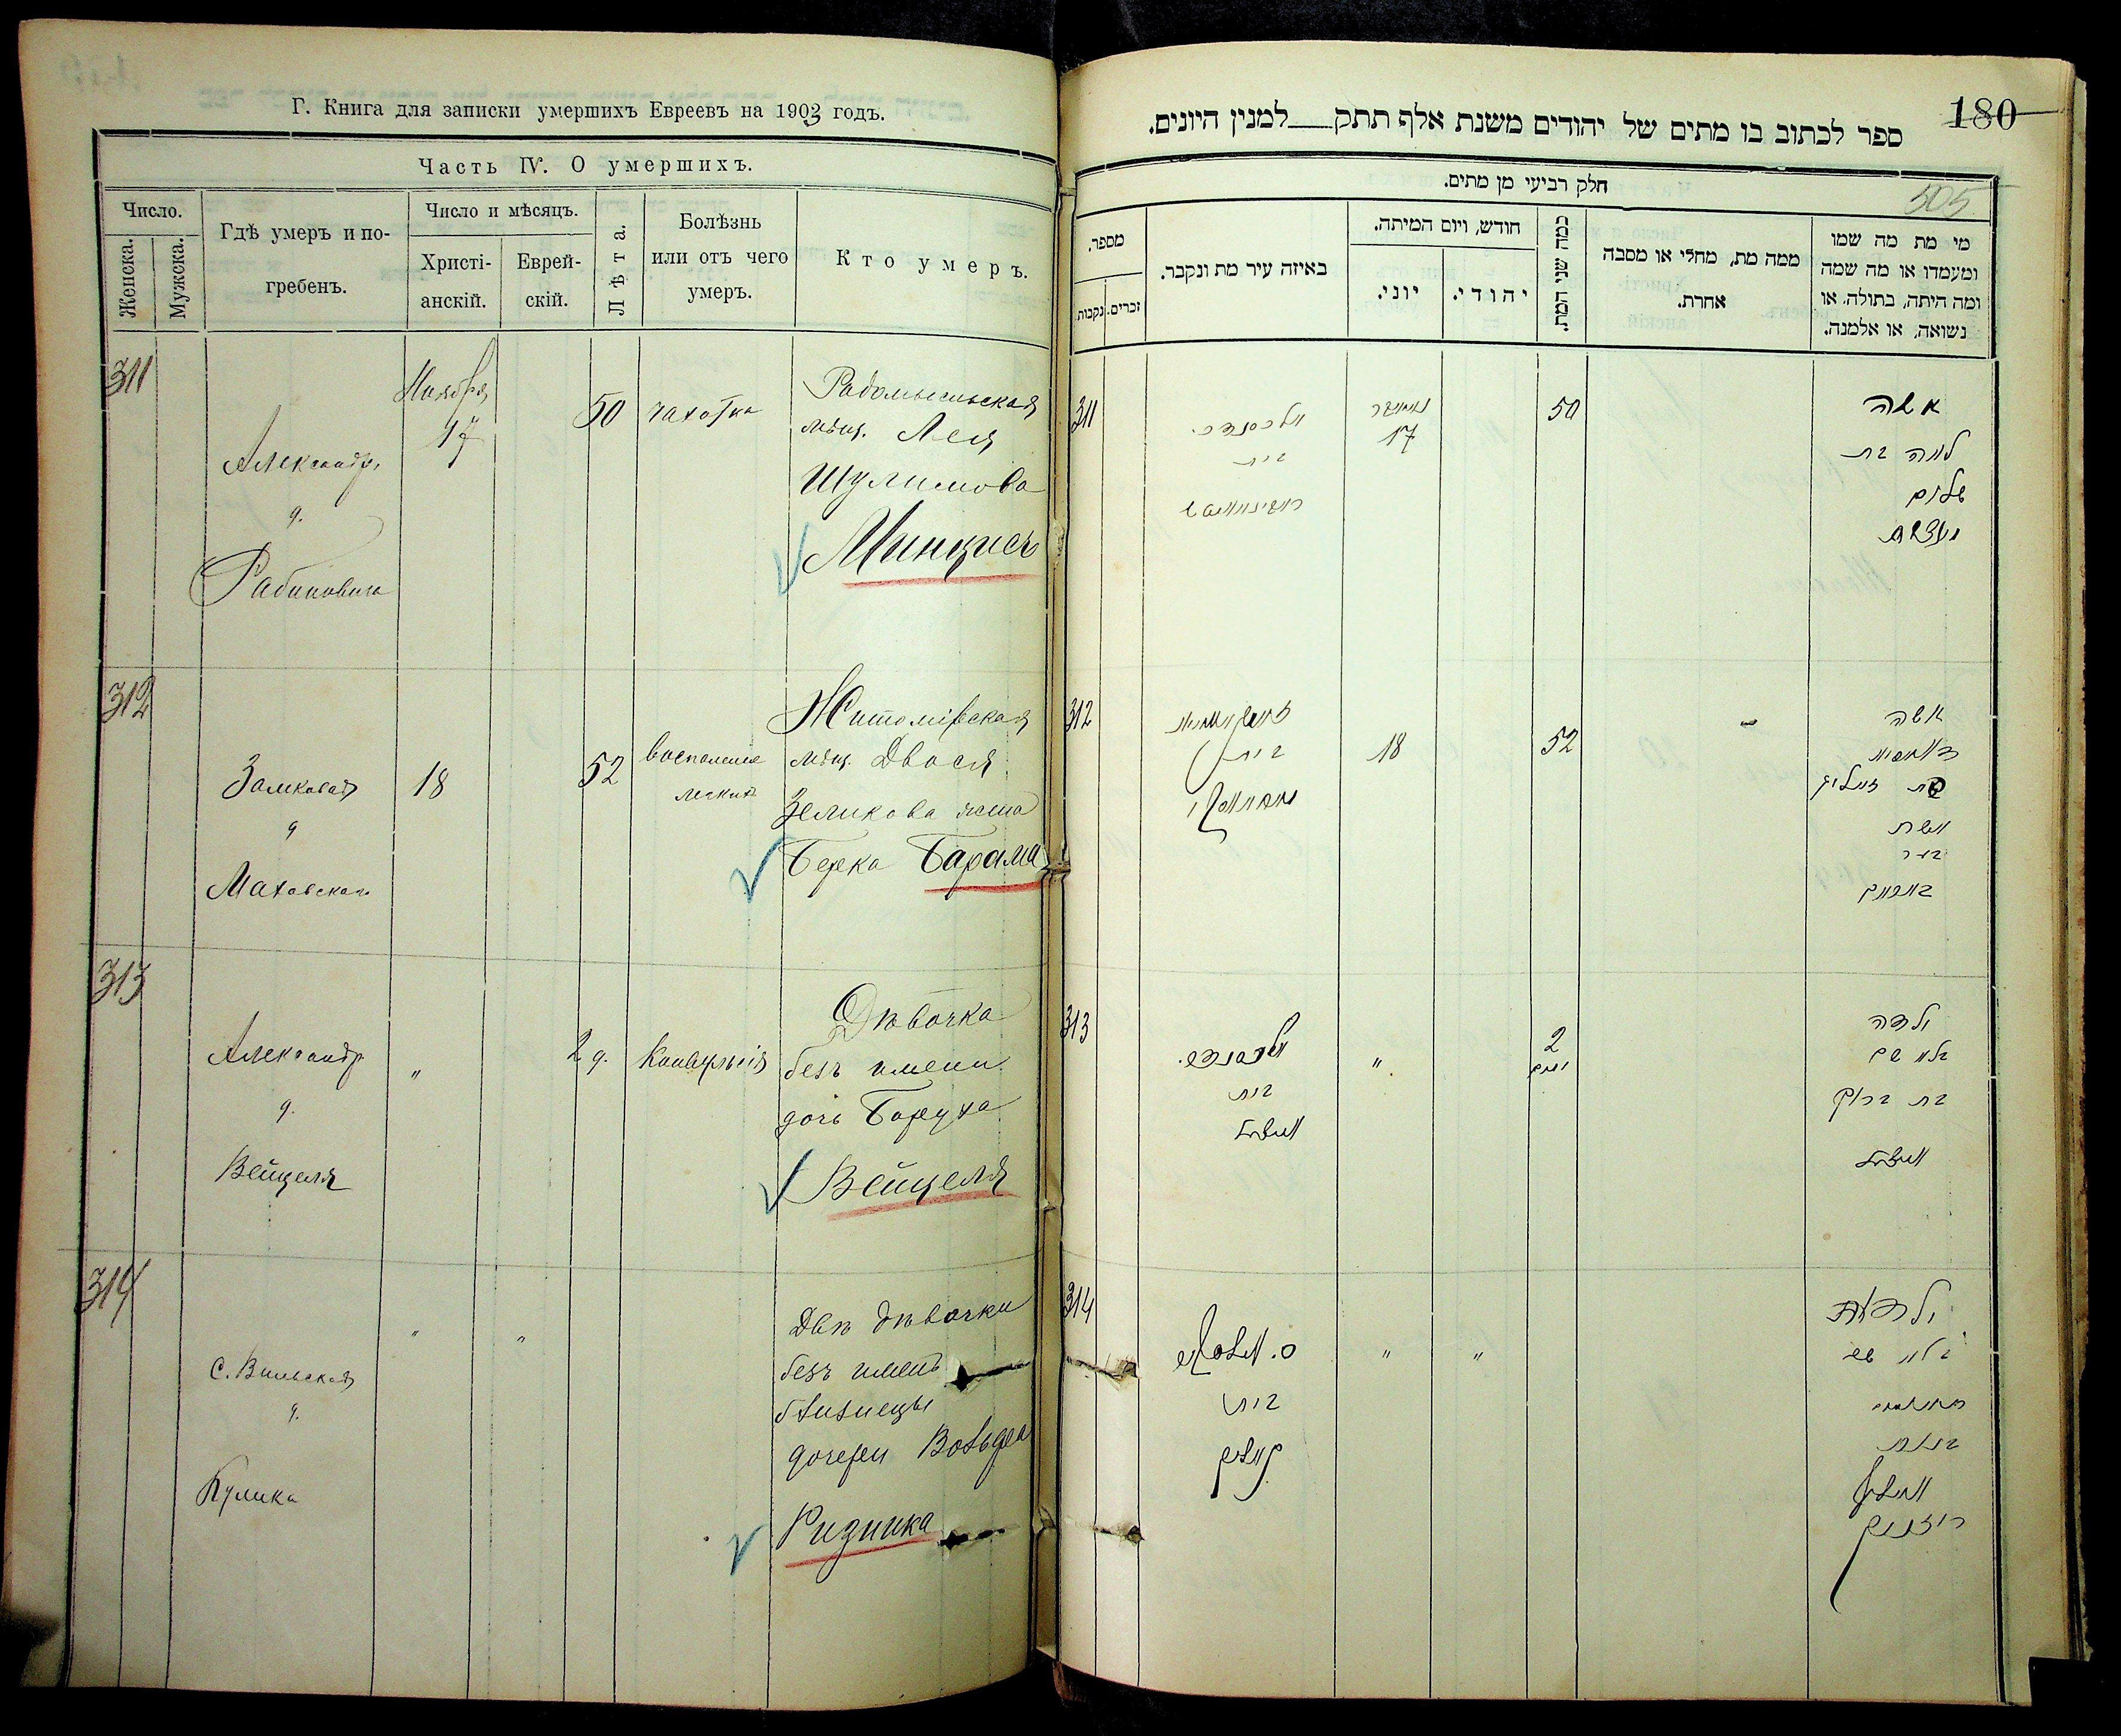 Г. Книга для записки умершихъ Евреевъ на 1903 годъ.
Часть IV. О умершихъ.
Число.
Женска.
Мужска.
Гдѣ умеръ и по-
гребенъ.
Число и мѣсяцъ.
Христі-
анскій.
Еврей-
скій.
Лѣта.
Болѣзнь
или отъ чего
умеръ.
Кто умеръ.
311
Александр.
д.
Рабиновича
Ноября
17
50
чахотка
Радомысльская
мѣщ. Лея
Шулимова
Минцисъ
312
Замковая
д
Маховскаго
18
52
воспаление
легких
Житомірская
мѣщ. Двося
Зеликова жена
Берка Барама
313
Александр
д.
Вейцеля
"
2 д.
Конвульсія
Дѣвочка
безъ имени
дочь Боруха
Вейцеля
314
С. Вильская
д.
Кулика
"
"
Двѣ дѣвочки
безъ именъ
близнецы
дочери Вольфа
Ризника
180
505
ספר לכתוב בו מתים של יהודים משנת אלף תתק למנין היונים.
חלק רביעי מן מתים.
מספר.
נקבות
זכרים.
באיזה עיר מת ונקבר.
חודש, ויום המיתה.
יוני.
יהודי.
כמה שני המת.
ממה מת, מחלי או מסבה
אחרת.
מי מת מה שמו
ומעמדו או מה שמה
ומה היתה, בתולה, או
נשואה, או אלמנה.
311
אלכסנדר.
בית
17
50
אשה
לאה בת
שלום
312
בית
18
52
אשה
בת זעליג
אשת
בער
באראם
313
בית
"
2
ימים
ילדה
בלא שם
בת ברוך
314
בית
קוליק
"
"
ילדות
בלא שם
בנות
וואלף
ריזניק